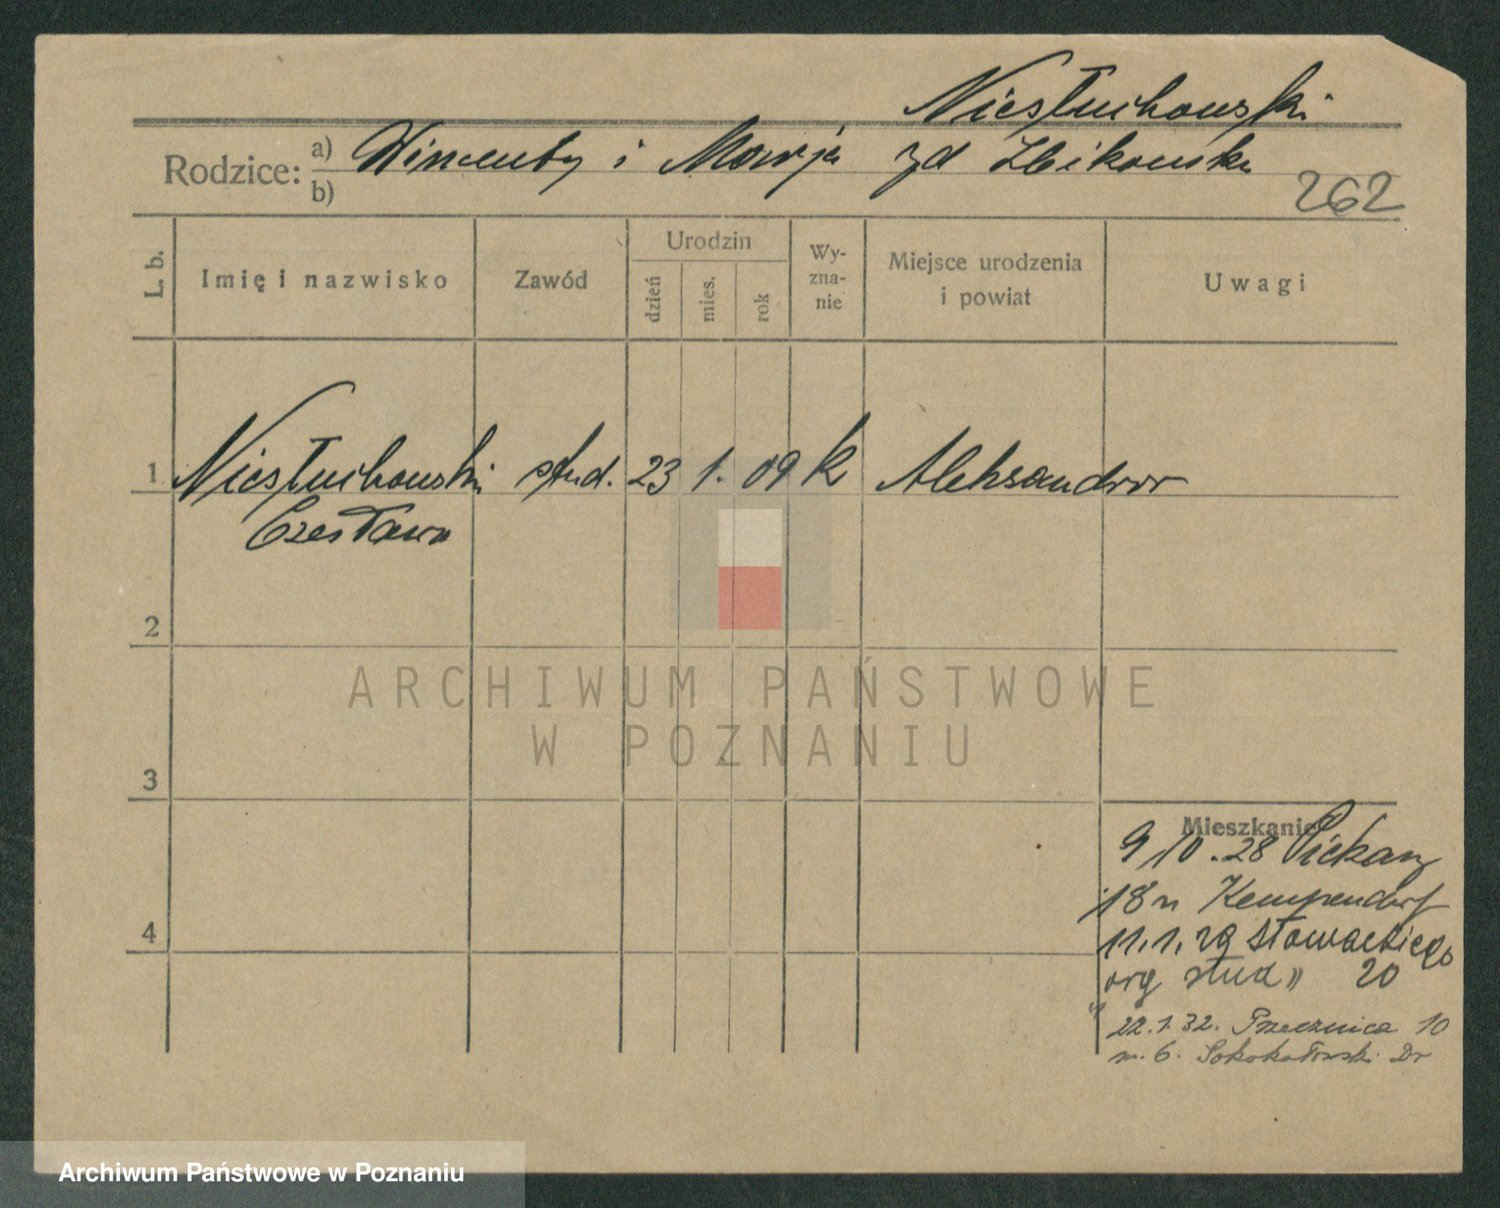 Niesłuchowski
Rodzice: a) Wincenty i Maria zd Zbikowska
b)
262
L. b.
Imię i nazwisko
Zawód
Urodzin
dzień
mies.
rok
Wy-
zna-
nie
Miejsce urodzenia
i powiat
Uwagi
1 Niesłuchowski stud. 23 1. 09 k Aleksandrów
Czesław
2
3
4
ARCHIWUM PAŃSTWOWE
W POZNANIU
Mieszkanie
9/10.28 Piekary
18 Kempendorf
11.1.29 Słowackiego
org stud" 20
22.1.32. Przecznica 10
m. 6. Dr
Archiwum Państwowe w Poznaniu